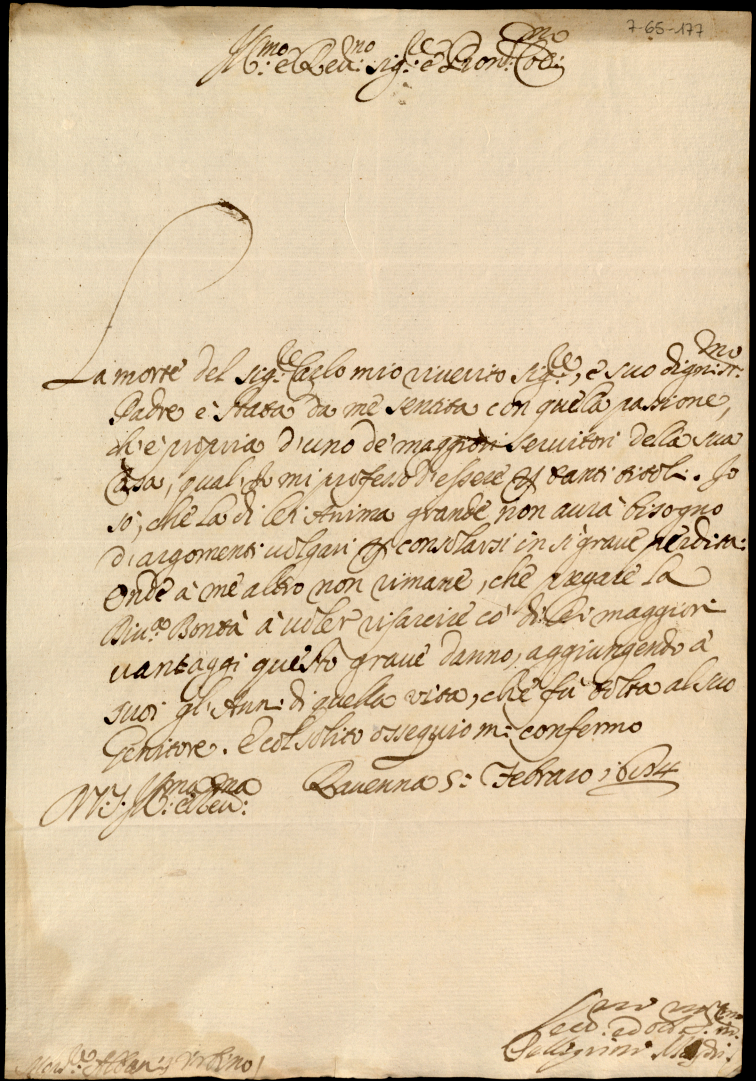 7-65-177
Ill:mo e Rev:mo Sig:re e Pron Col:mo
La morte del Sig:re Carlo mio riverito Sig:re, e suo dignis:mo
Padre è stata da me sentita con quella passione,
ch'è propria d'uno de' maggiori servitori della sua
Casa, qual'io mi professo d'essere p tanti titoli. Io
sò, che la di lei Anima grande non aurà bisogno
d'argomenti volgari p consolarsi in sì grave perdita:
Onde à me altro non rimane, che pregare la
Div:a Bontà à voler risarcire co' di lei maggiori
vantaggi questo grave danno, aggiungendo à
suoi gl'Anni di quella vita, che fù tolta al suo
Genitore. E col solito ossequio mi confermo
V.S. Ill:ma e Rev:ma Ravenna 5: Febraro 1684
Mons:re Albani Urbino